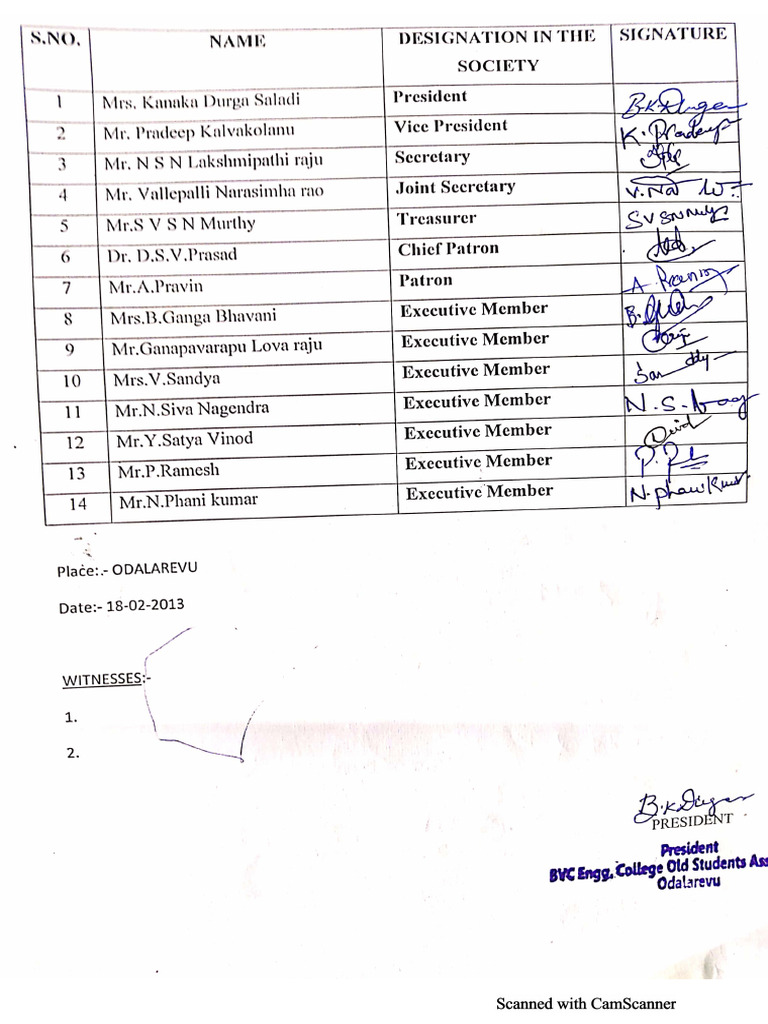 S.NO. NAME DESIGNATION IN THE SOCIETY SIGNATURE
1 Mrs. Kanaka Durga Saladi President B.K.Durga
2 Mr. Pradeep Kalvakolanu Vice President K. Pradeep
3 Mr. N S N Lakshmipathi raju Secretary
4 Mr. Vallepalli Narasimha rao Joint Secretary
5 Mr.S V S N Murthy Treasurer
6 Dr. D.S.V.Prasad Chief Patron
7 Mr.A.Pravin Patron
8 Mrs.B.Ganga Bhavani Executive Member
9 Mr.Ganapavarapu Lova raju Executive Member
10 Mrs.V.Sandya Executive Member
11 Mr.N.Siva Nagendra Executive Member N.S.Nag
12 Mr.Y.Satya Vinod Executive Member
13 Mr.P.Ramesh Executive Member
14 Mr.N.Phani kumar Executive Member
Place:.- ODALAREVU
Date:- 18-02-2013
WITNESSES:-
1.
2.
B.K Durga
PRESIDENT
President
BVC Engg. College Old Students Ass
Odalarevu
Scanned with CamScanner